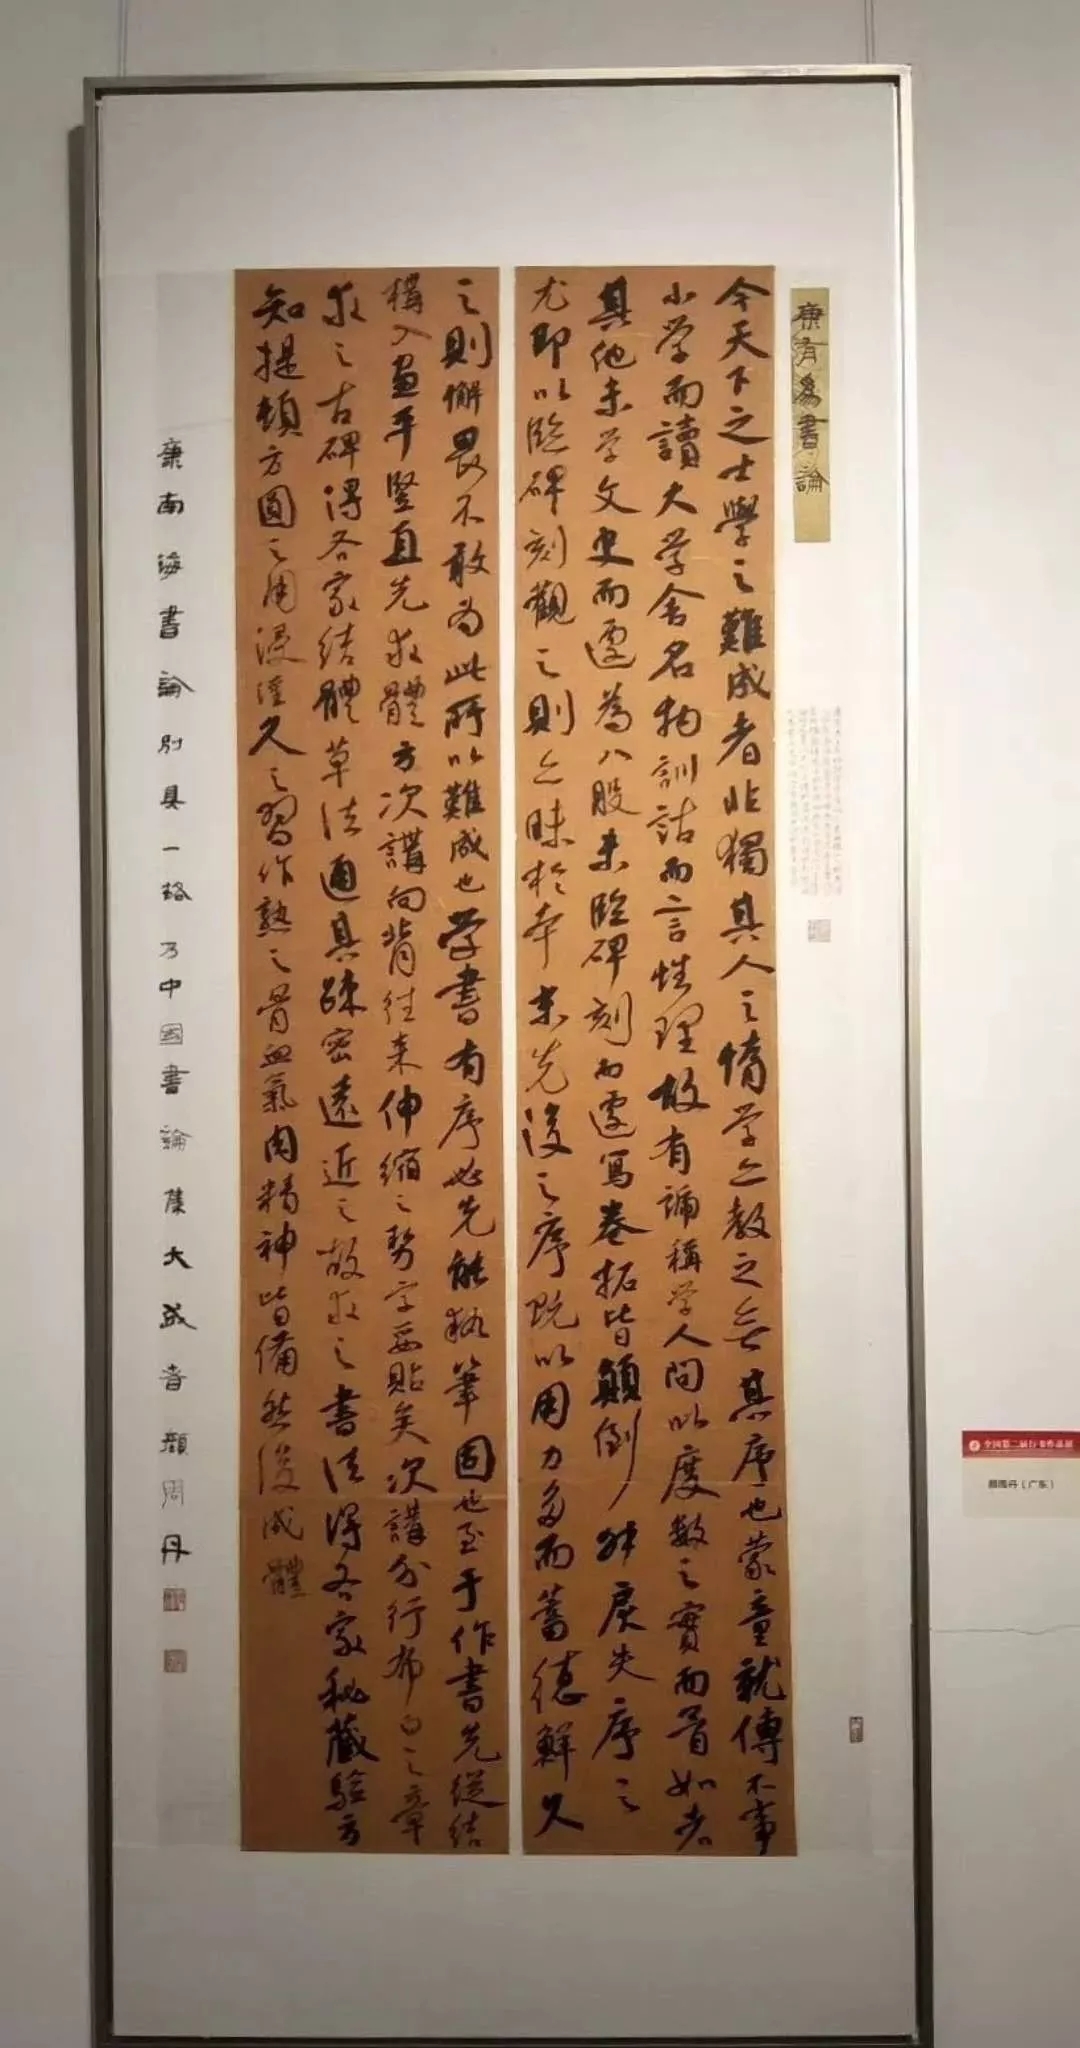 康有為書論
今天下之士學之難成者非獨其人之惰学亡教之無其序也蒙童就傅不事
小学而讀大学舍名物訓詁而言性理故有誦稱学人問以度數之實而瞀如者
其他未学文史而遽為八股未臨碑刻而遽写卷拓皆顛倒舛戾失序之
尤即以臨碑刻觀之則亡昧於本末先後之序既以用力多而蓄德鮮久
之則懈畏不敢為此所以難成也学書有序必先能执筆固也至于作書先從結
構入畫平竪直先求體方次講向背往来伸縮之势字要貼矣次講分行布白之章
求之古碑得各家結體草法通具疎密遠近之故求之書法得各家秘藏驗方
知提頓方圓之用浸淫久之習作熟之骨血氣肉精神皆備然後成體
康南海書論別具一格乃中国書論集大成者顏周丹
全国第二届行书作品展
顏周丹（广东）